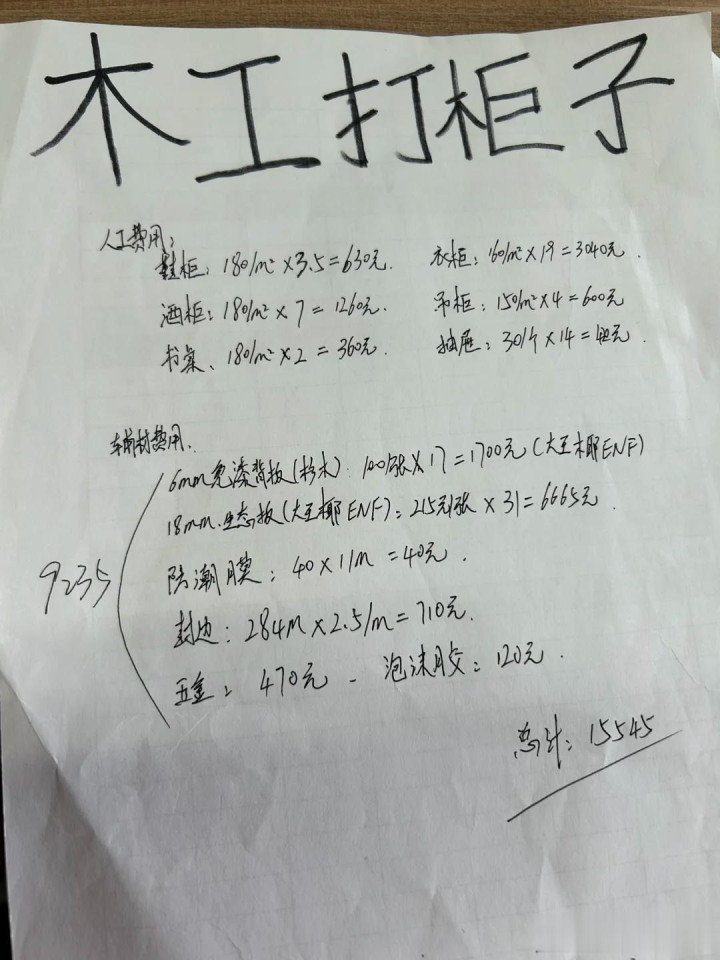 木工打柜子
人工费用：
鞋柜：180/m²×3.5=630元.
衣柜：160/m²×19=3040元.
酒柜：180/m²×7=1260元.
吊柜：150/m²×4=600元
书桌、180/m²×2=360元.
抽屉：30/个×14=420元.
辅材费用.
6mm免漆背板(杉木)：100/张×17=1700元(大王椰ENF)
18mm.生态板(大王椰ENF)：215元/张×31=6665元.
防潮膜：40×1/m=40元.
封边：284m×2.5/m=710元.
五金：470元、泡沫胶：120元.
9235
总计：15545